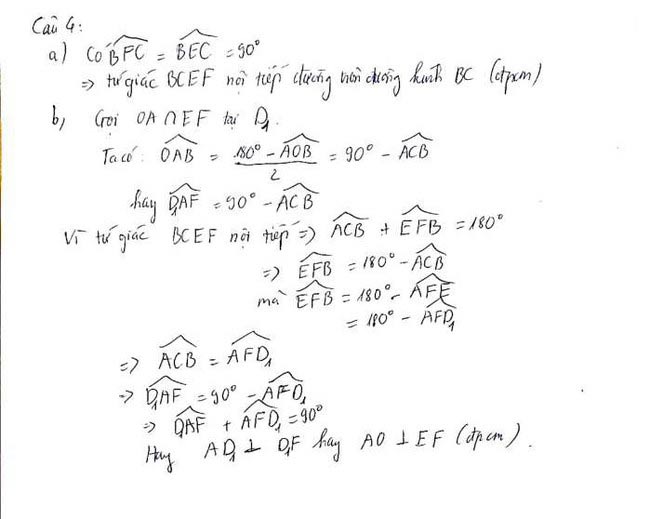 Câu 4:
a) Có BFC = BEC = 90°
=> tứ giác BCEF nội tiếp đường tròn đường kính BC (đpcm)
b, Gọi OA ∩ EF tại D₁.
Ta có: OAB = (180° - AOB)/2 = 90° - ACB
hay D₁AF = 90° - ACB
Vì tứ giác BCEF nội tiếp => ACB + EFB = 180°
=> EFB = 180° - ACB
mà EFB = 180° - AFE
= 180° - AFD₁
=> ACB = AFD₁
=> D₁AF = 90° - AFD₁
=> D₁AF + AFD₁ = 90°
Hay AD₁ ⊥ D₁F hay AO ⊥ EF (đpcm).